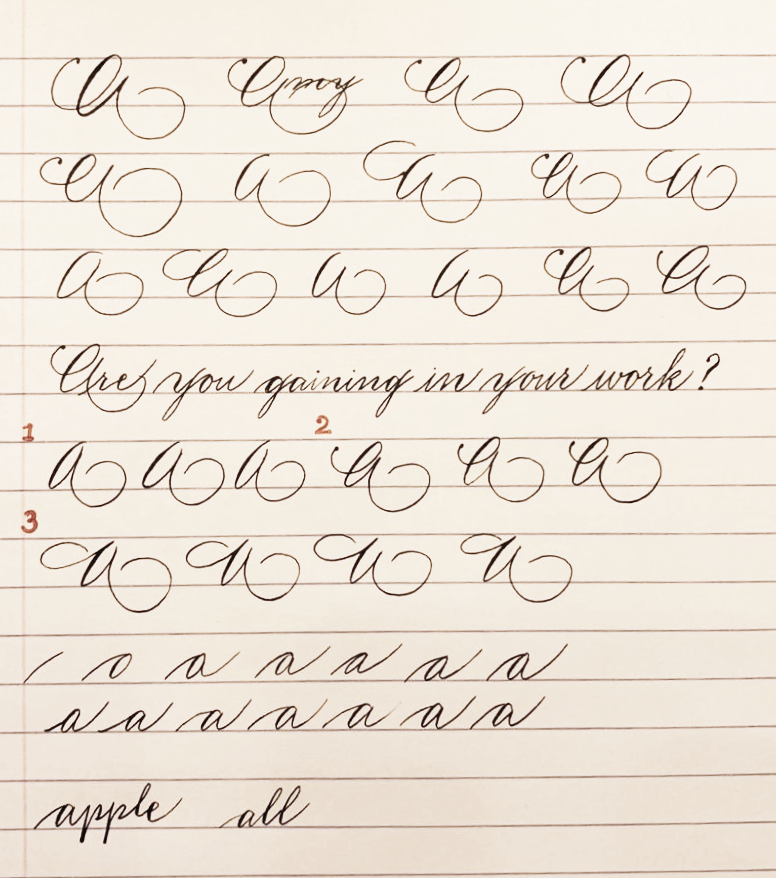 A Amy A A
A A A A A
A A A A A A
Are you gaining in your work?
1 2
A A A A A A
3
A A A A
o a a a a a
a a a a a a a
apple all